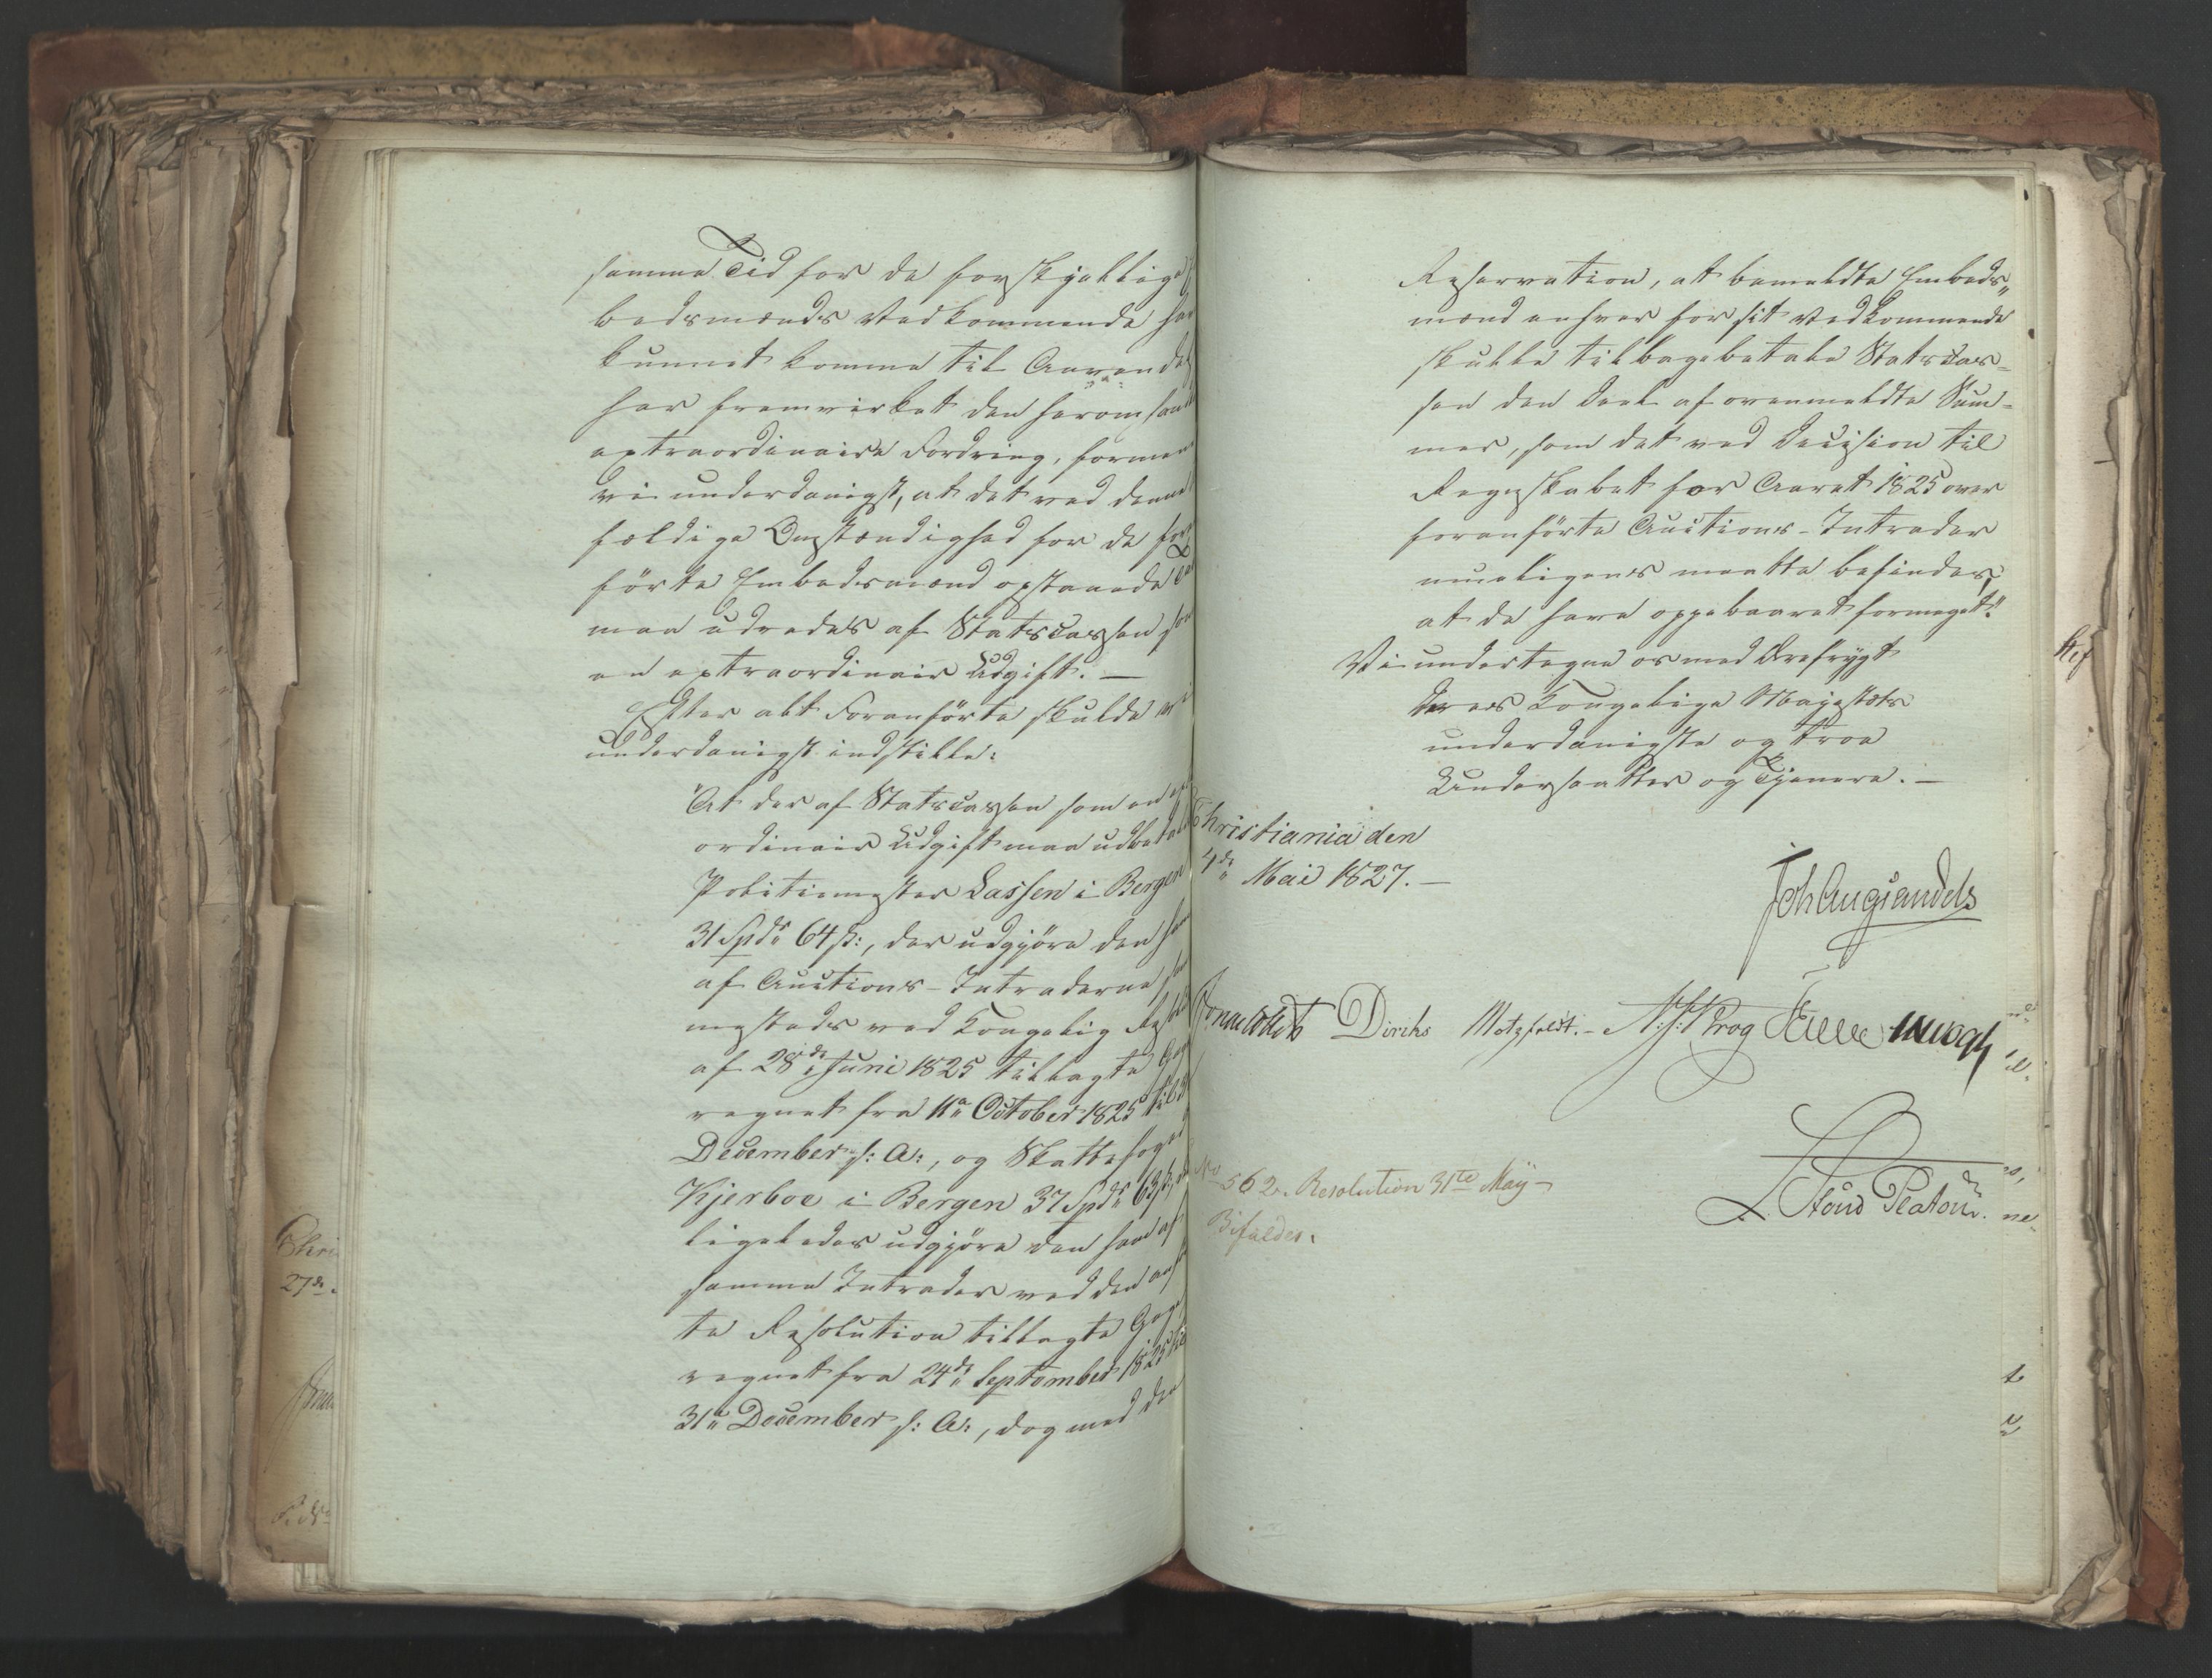 samme Tid for de forskjellige
bedsmænds Vedkommende har
kunnet komme til Anvendel
har fremvirket den herom
extraordinaire Fordring, formene
vi underdanigst, at det ved denne
fældige Omstændighed for de
førte Embedsmænd opstaaede
maa udredes af Statscassen som
en extraordinair Udgift. —
Efter alt Foranførte skulde vi
underdanigst indstille:
"At der af Statscassen som en
ordinair Udgift maa udbetales
Politiemester Lassen i Bergen
31 Spdr 64 ß:, der udgjøre den ham
af Auctions-Intraderne
ved Kongelig Resol
af 28de Juni 1825 tillagte Gage
regnet fra 11te October 1825 til 31
December s: A:, og Skattefoged
Kjerboe i Bergen 37 Spdr 63 ß,
ligeledes udgjøre den ham af
samme Intrader ved den anf
te Resolution tillagte Gage
regnet fra 24de September 1825 til
31te December s: A:, dog med den
Reservation, at bemeldte Embeds„
mænd enhver for sit Vedkommende
skulle tilbagebetale Statscas=
sen den Deel af ovenmeldte Sum=
mer, som det ved Decision til
Regnskabet for Aaret 1825 over
foranførte Auctions-Intrader
mueligens maatte befindes,
at de have oppebaaret formeget."
Vi undertegne os med Ærefrygt
Deres Kongelige Majestæts
underdanigste og troe
Undersaatter og Tjenere. —
Christiania den
4de Mai 1827. —
Joh Aug Sandels
Jonas Collett Diriks Motzfeldt. - N: J: Krog
L. Stoud Platou.
No 562. Resolution 31te Maÿ -
Bifaldes.